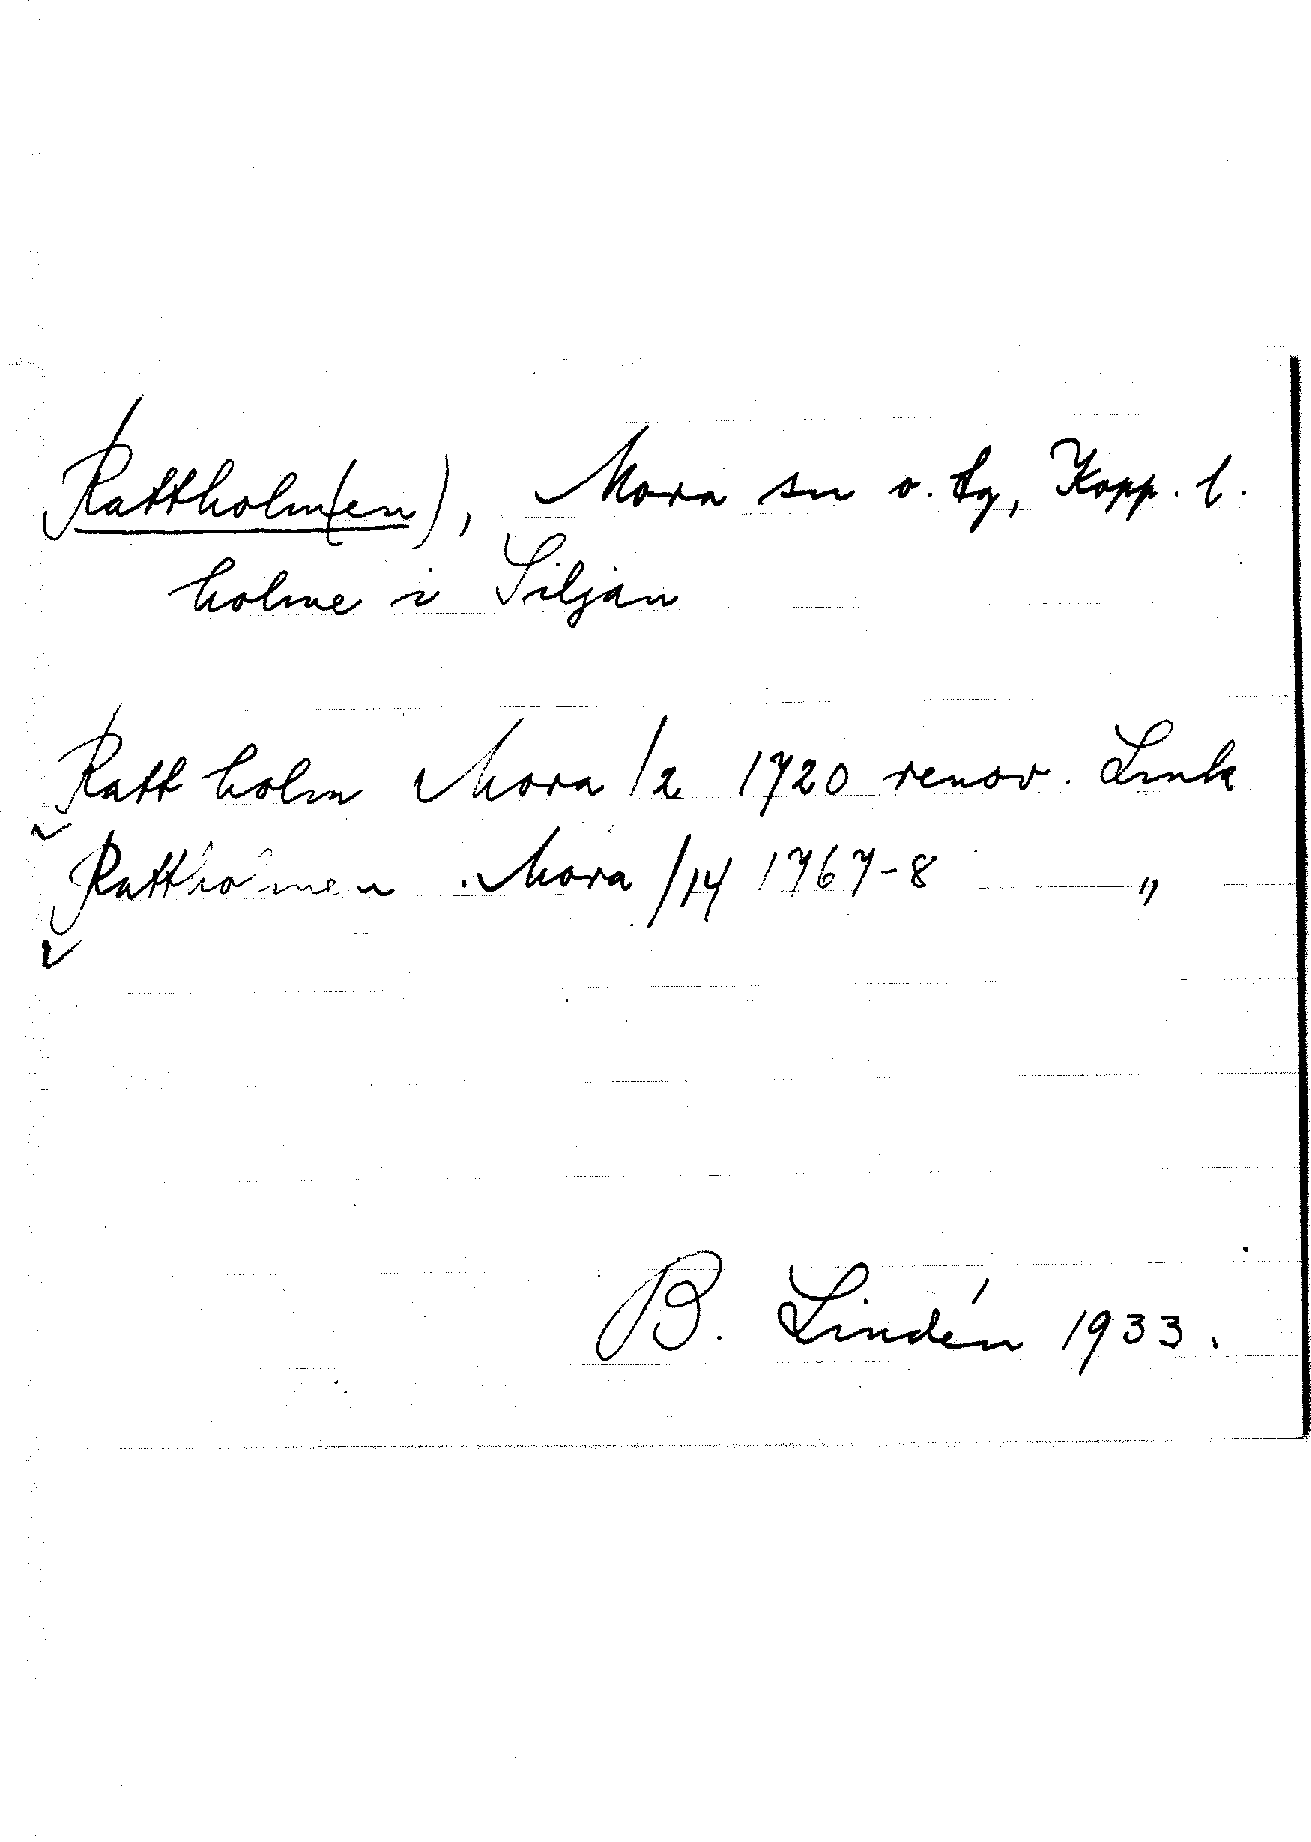 Rattholm(en), Mora sn o. tg, Kopp. l.
holme i Siljan
Ratt holm Mora /2 1720 renov. Lmk
Rattholmen Mora /14 1767-8 "
B. Lindén 1933.